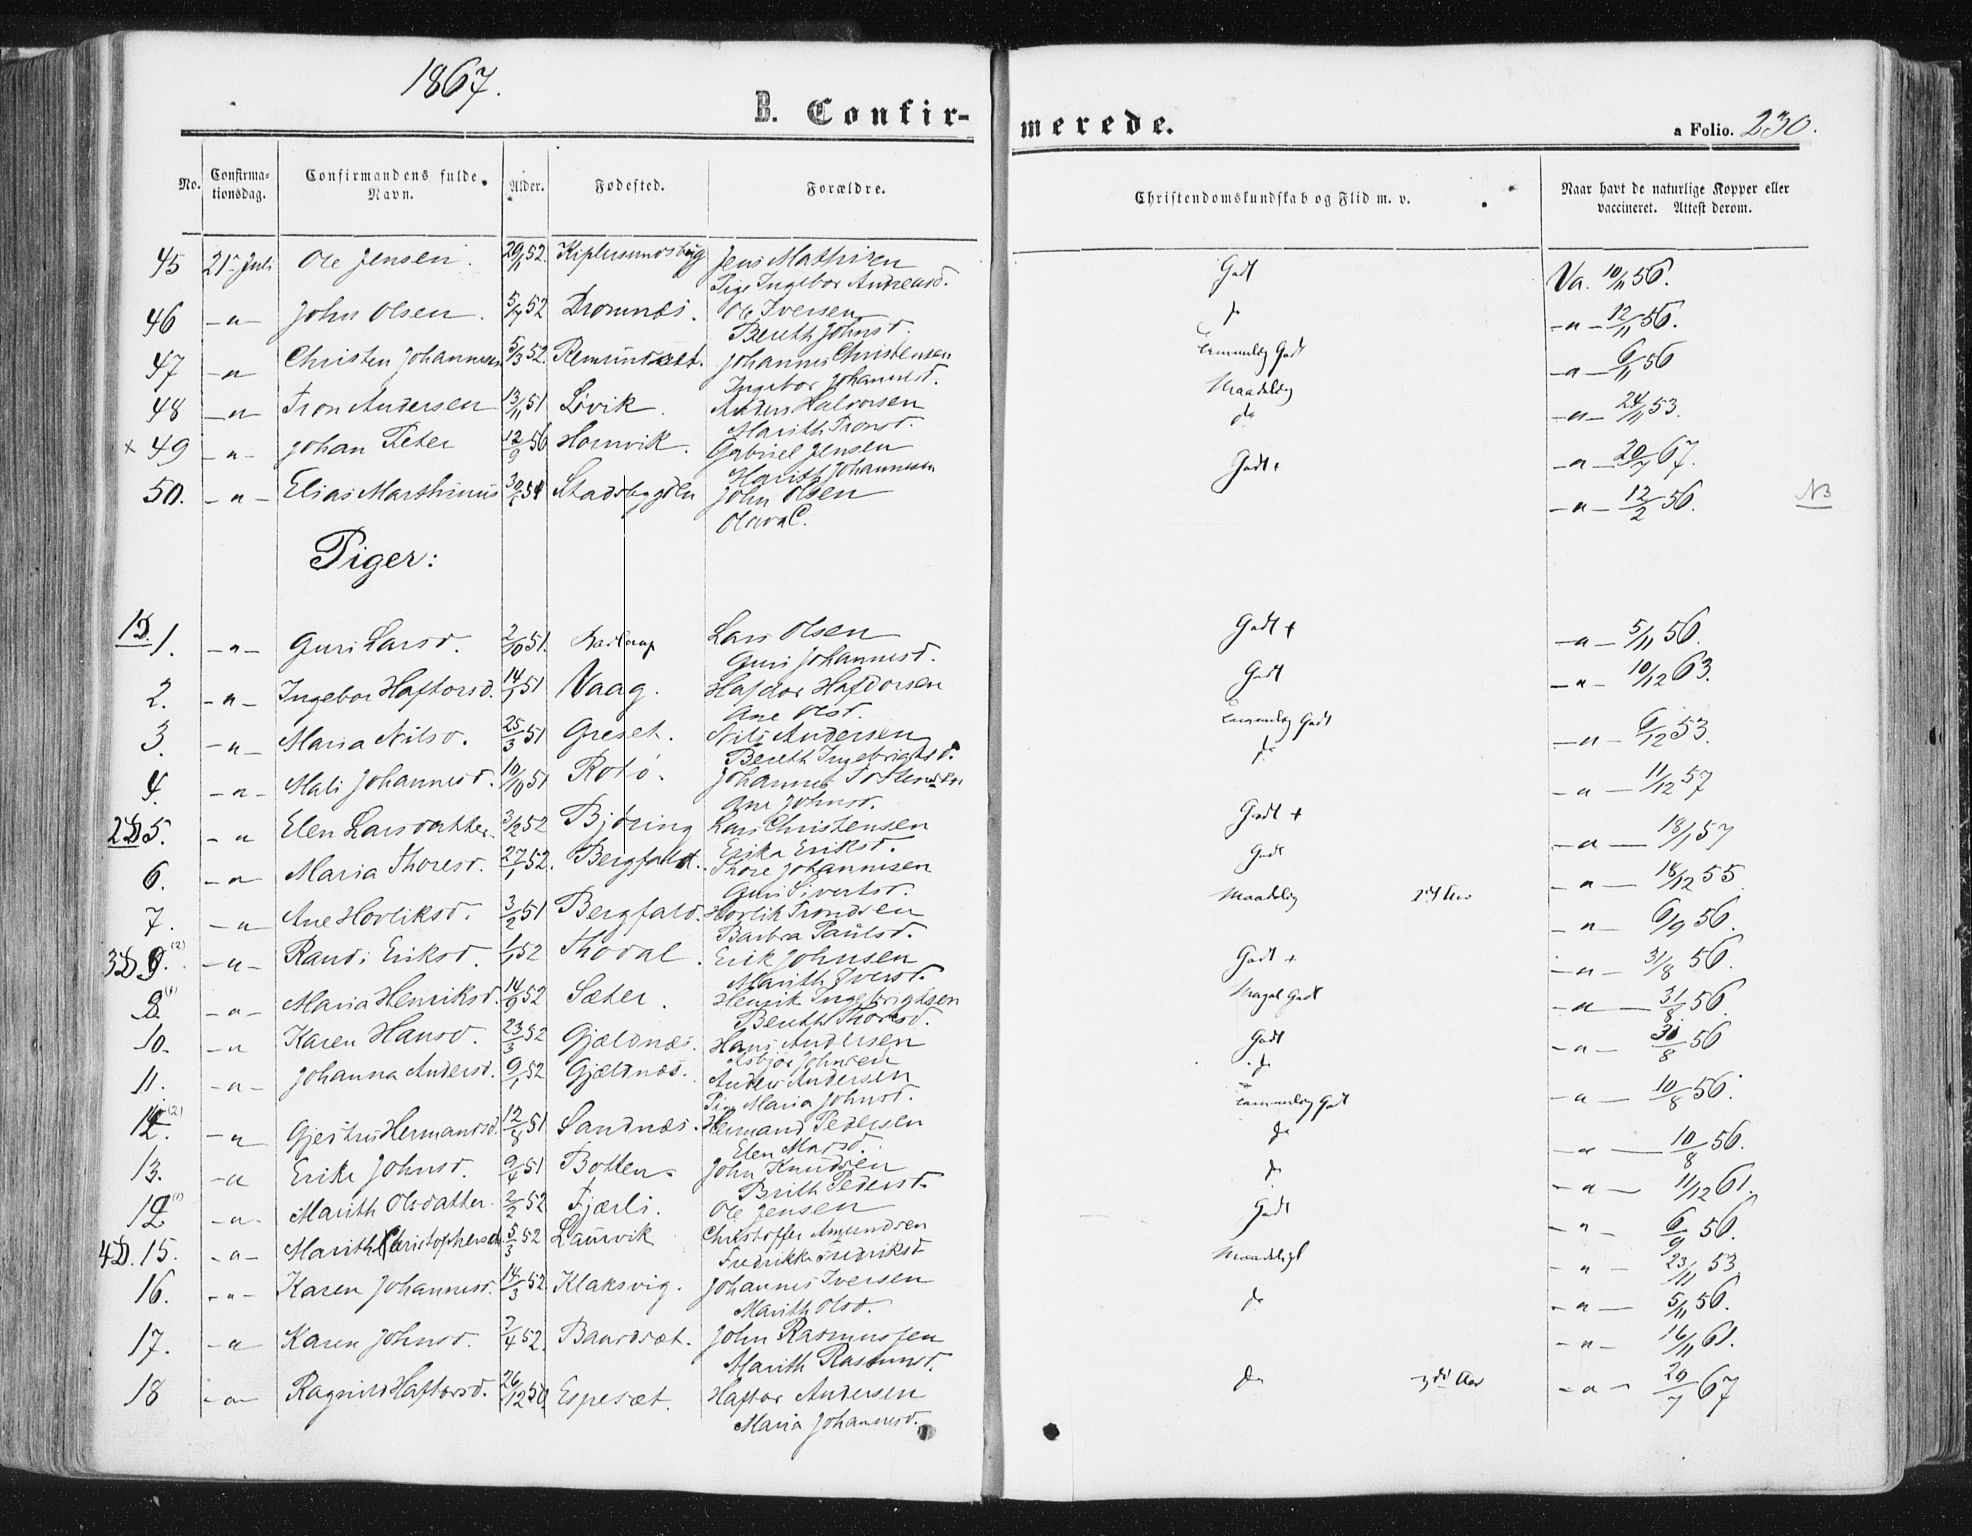 1867.
B. Confir-
merede.
a Folio. 230.
No. Confirmationsdag. Confirmandens fulde Navn. Alder. Fødested. Forældre. Christendomskundskab og Flid m. v. Naar havt de naturlige Kopper eller vaccineret. Attest derom.
45 21de Juli Ole Jensen. 29/11 52. Jens Mathisen Godt Va. 10/11 56.
Pige Ingebor Andreasd.
46 -"- John Olsen. 5/7 52 Dromnes. Ole Iversen do -"- 12/11 56.
Bereth Johnsd.
47 -"- Christen Johannesen 5/3 52. Remundset. Johannes Christensen temmelig Godt -"- 6/11 56
Ingebor Johannesd.
48 -"- Tron Andersen 13/11 51 Løvik. Anders Halvorsen Maadelig -"- 24/11 53.
Marith Tronsd.
× 49 -"- Johan Peter 12/9 50 Hornvik. Gabriel Jensen do -"- 20/7 67.
Marith Johannesen
50. -"- Elias Marthinus 54 Stadsbygden John Olsen Godt + -"- 12/2 56. NB
Olava C.
Piger:
1D. 1. -"- Guri Larsd. 2/10 51. Lars Olsen Godt + -"- 5/11 56.
Guri Johannesd.
2. -"- Ingebor Haftorsd. 14/1 51 Vaag. Hafdor Hafdorsen Godt -"- 10/12 63.
Ane Olsd.
3. -"- Maria Nilsd. 25/3 51 Greset. Nils Andersen temmelig Godt -"- 6/12 53.
Bereth Ingebrigtsd.
4. -"- Mali Johannesd. 10/10 51 Rotø. Johannes do -"- 11/12 57
Ane Johnsd.
2D 5. -"- Elen Larsdatter 3/12 52 Bjøring Lars Christensen Godt + -"- 18/1 57
Erika Eriksd.
6. -"- Maria Thoresd. 27/1 52. Bergfald. Thore Johannesen Godt -"- 18/12 55
Guri Sivertsd.
7. -"- Ane Hovliksd. 3/2 51 Bergfald. Hovlik Trondsen Maadelig 2det Aar -"- 6/9 56.
Barbra Paulsd.
3D 9. (2) -"- Randi Eriksd. 1/1 52 Thodal. Erik Johnsen Godt + -"- 31/8 56.
Marith Iversd.
8 (1) -"- Maria Henriksd. 14/9 52 Sæter. Henrik Ingebrigtsen Meget Godt -"- 31/8 56.
Bereth Thoresd.
10. -"- Karen Hansd. 23/3 52 Gjeldnæs. Hans Andersen Godt -"- 31/8 56
Asbjør Johnsen
11. -"- Johanna Andersd. 9/1 52 Gjeldnæs. Anders Andersen do -"- 10/8 56.
Pige Maria Johnsd.
14. (2) -"- Gjertru Hermansd. 12/8 51 Sandnæs. Hermand Pedersen temmelig Godt -"- 10/8 56.
Elen Marsd.
13. -"- Erike Johnsd. 9/4 51 Botten. John Knudsen do -"- 11/12 61.
Brith Pedersd.
12 (1) -"- Marith Olsdatter. 2/2 52 Fjærli. Ole Jensen do -"- 6/9 56.
4D. 15. -"- Marith Christophersd. 5/3 52 Laurvik Christoffer Amundsen Godt -"- 23/11 53
Fredrikke Fredriksd
16. -"- Karen Johannesd. 14/3 52. Klaksvig. Johannes Iversen Maadeligt -"- 5/11 56.
Marith Olsd.
17. -"- Karen Johnsd. 7/4 52. Baardsæt. John Rasmussen do -"- 16/11 61.
Marith Rasmusd.
18 -"- Ragnild Haftorsd. 26/12 50. Espesæt. Haftor Andersen do 3die Aar -"- 20/7 67
Maria Johannesd.